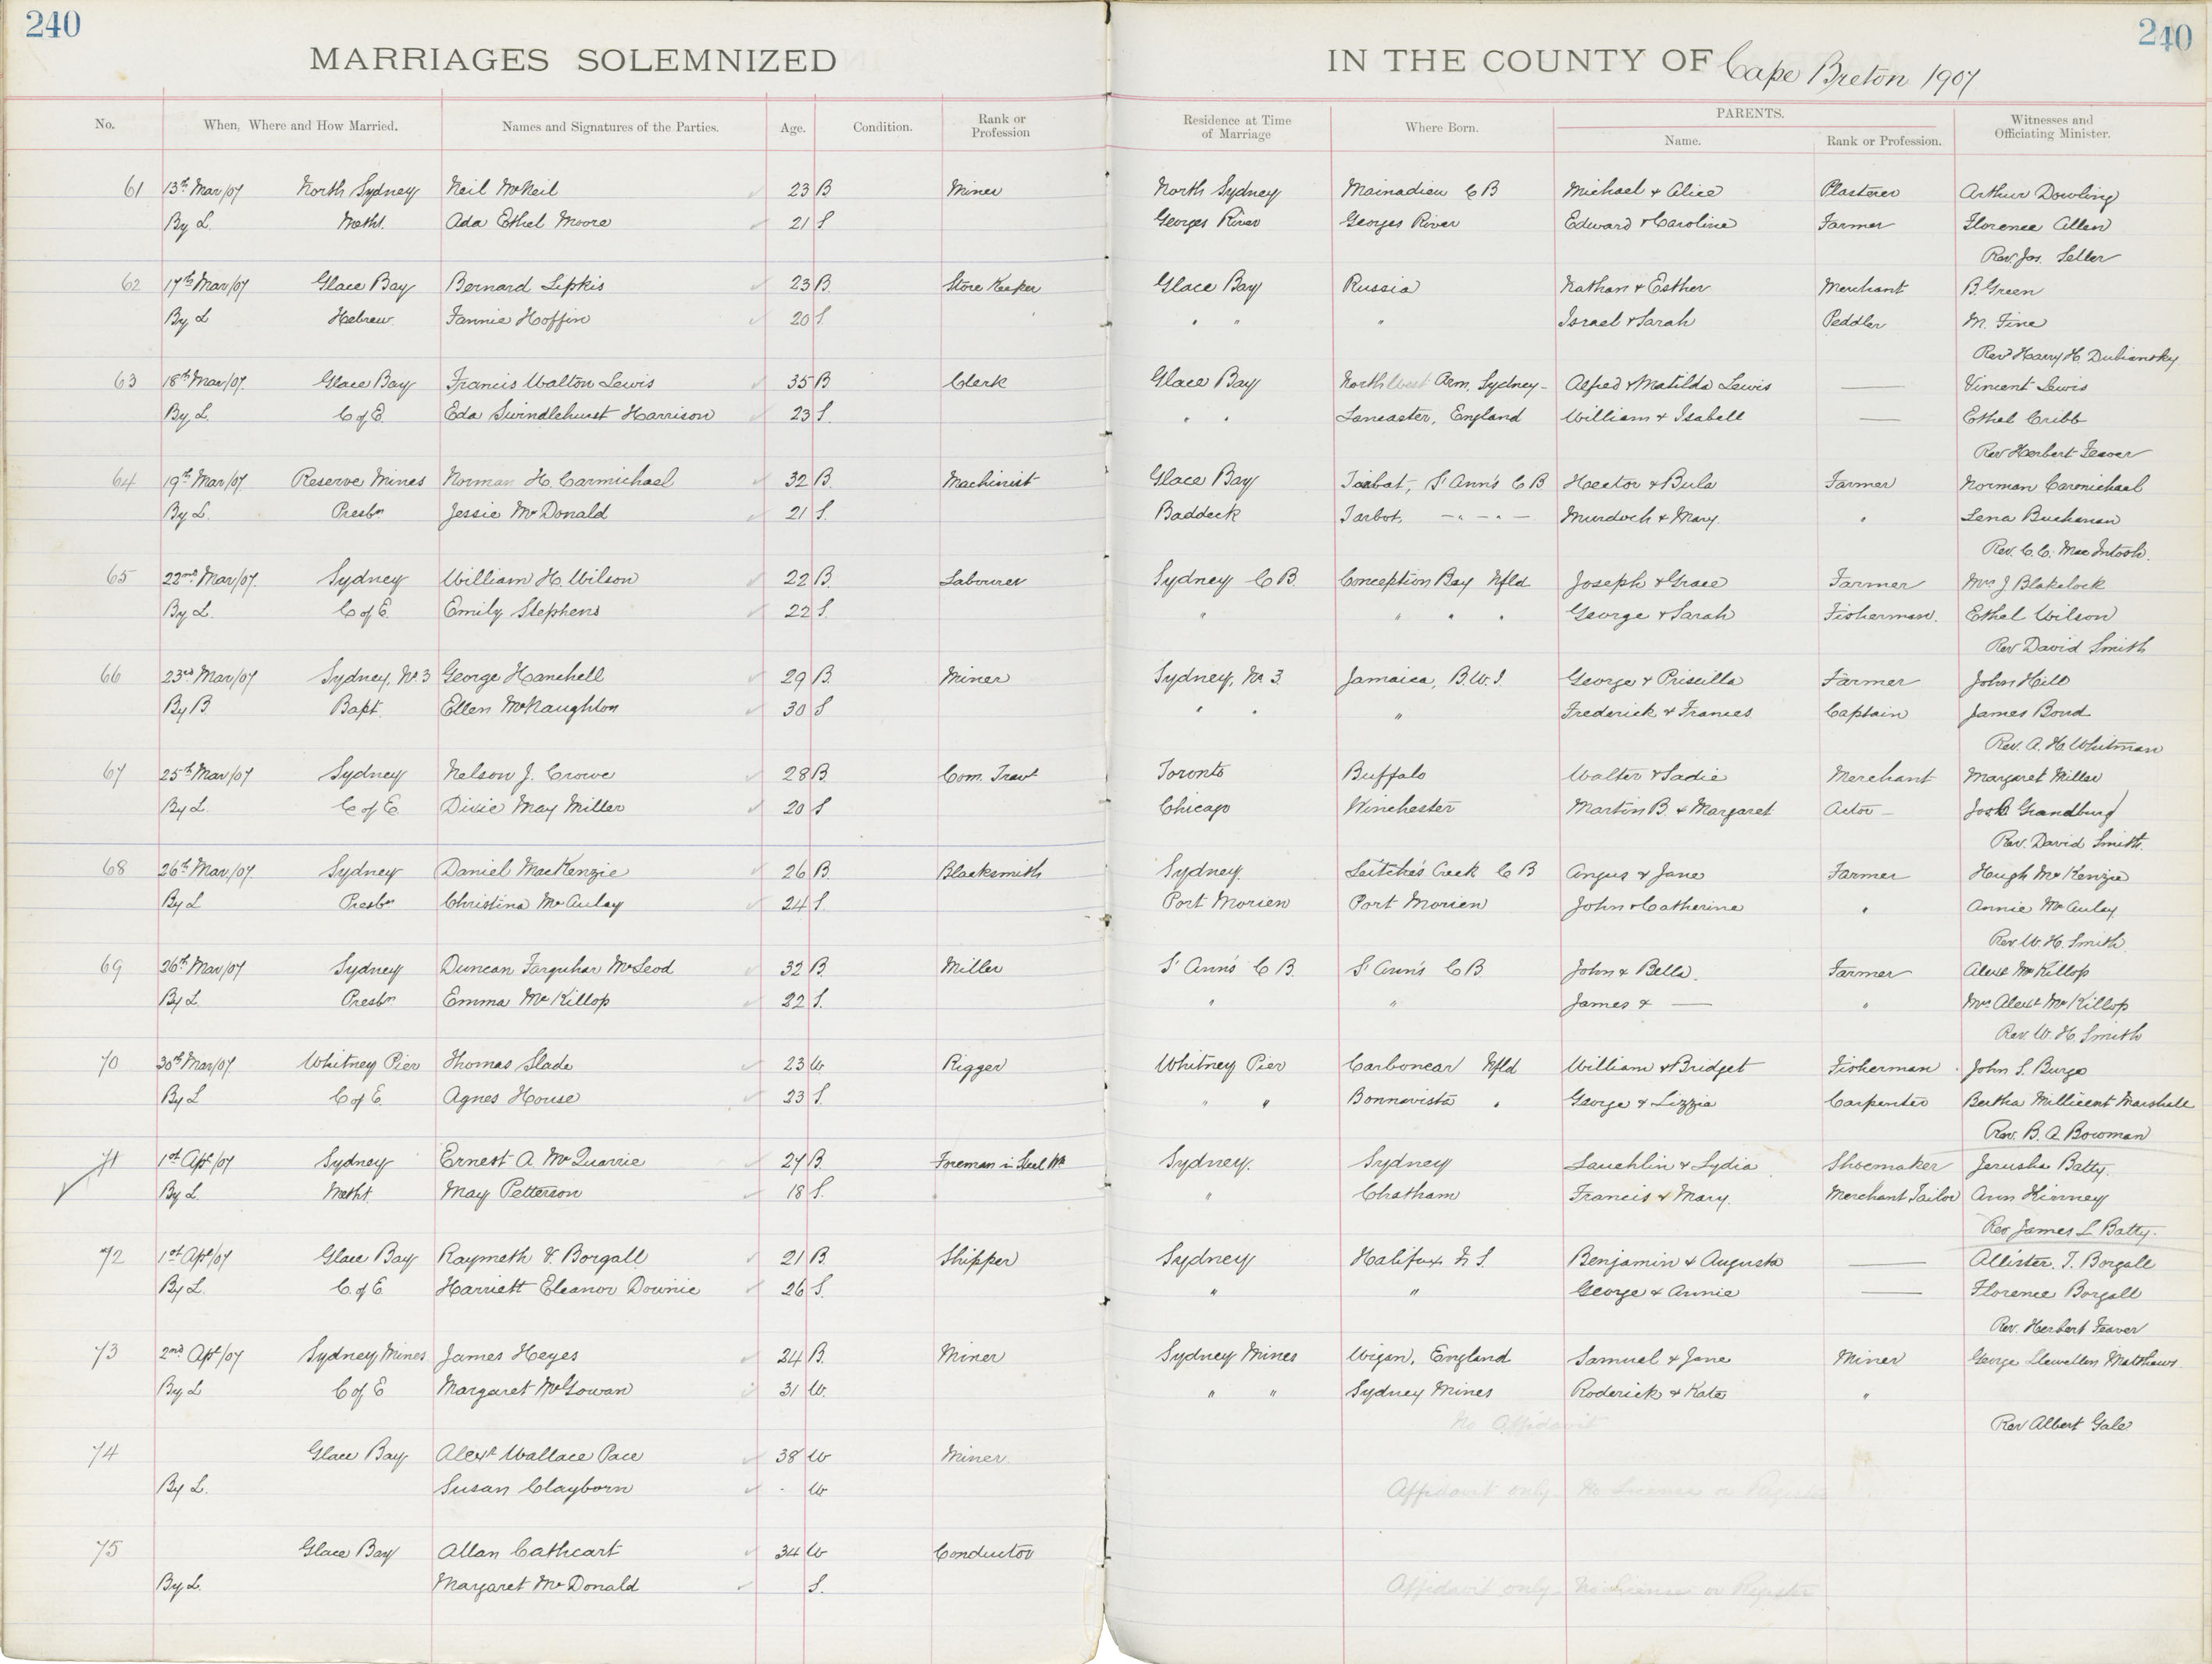 240
240
MARRIAGES SOLEMNIZED IN THE COUNTY OF Cape Breton 1907
No. When, Where and How Married. Names and Signatures of the Parties. Age. Condition. Rank or Profession Residence at Time of Marriage Where Born. PARENTS. Name. Rank or Profession. Witnesses and Officiating Minister.
61 13th Mar/07 North Sydney Neil McNeil 23 B Miner North Sydney Mainadieu C B Michael & Alice Plasterer Arthur Dowling
By L. Metht. Ada Ethel Moore 21 S. Georges River Georges River Edward & Caroline Farmer Florence Allen
Rev. Jos. Seller
62 17th Mar/07 Glace Bay Bernard Lipkis 23 B. Store Keeper Glace Bay Russia Nathan & Esther Merchant B. Green
By L Hebrew Fannie Hoffin 20 S. " " " Israel & Sarah Peddler M. Fine
Revd Harry H. Dubiansky
63 18th Mar/07. Glace Bay Francis Walton Lewis 35 B Clerk Glace Bay North West Arm, Sydney - Alfred & Matilda Lewis — Vincent Lewis
By L. C of E. Eda Swindlehurst Harrison 23 S. " " Lancaster, England William & Isabell — Ethel Cribb
Rev Herbert Feaver
64 19th Mar/07 Reserve Mines Norman H. Carmichael 32 B. Machinist Glace Bay Tarbot, St Ann's C B Hector & Bula Farmer Norman Carmichael
By L. Presbn Jessie McDonald 21 S. Baddeck Tarbot, —"—"— Murdoch & Mary " Lena Buchanan
Rev. C. C. MacIntosh.
65 22nd Mar/07. Sydney William H. Wilson 22 B. Labourer Sydney C B. Conception Bay Nfld Joseph & Grace Farmer Mrs J Blakelock
By L. C of E. Emily Stephens 22 S. " " " " George & Sarah Fisherman. Ethel Wilson
Rev David Smith
66 23rd Mar/07 Sydney, No. 3 George Hanchell 29 B. Miner Sydney, No 3 Jamaica, B.W.I. George & Priscilla Farmer John Hill
By B. Bapt. Ellen McNaughton 30 S " " " Frederick & Frances Captain James Bond
Rev. A. H. Whitman
67 25th Mar/07 Sydney Nelson J. Crowe 28 B. Com. Travr Toronto Buffalo Walter & Sadie Merchant Margaret Miller
By L. C of E. Dixie May Miller 20 S Chicago Winchester Martin B. & Margaret Actor —
Rev. David Smith.
68 26th Mar/07 Sydney Daniel MacKenzie 26 B. Blacksmith Sydney. Leitche's Creek C B Angus & Jane Farmer Hugh McKenzie
By L Presbn Christina McAulay 24 S. Port Morien Port Morien John & Catherine " Annie McAulay
Rev W. H. Smith
69 26th Mar/07 Sydney Duncan Farquhar McLeod 32 B. Miller St Ann's C B. St Ann's C B. John & Bella. Farmer Alext McKillop
By L Presbn Emma McKillop 22 S. " " James & — " Mrs Alext McKillop
Rev. W. H. Smith
70 30th Mar/07 Whitney Pier Thomas Slade 23 W Rigger Whitney Pier Carbonear Nfld William & Bridget Fisherman John S. Burge
By L C of E. Agnes House 23 S. " " Bonnavista " George & Lizzia Carpenter Bertha Millicent Marshall
Rev. B. A. Bowman
71 1st Apl/07 Sydney Ernest A. McQuarrie 27 B. Foreman in Steel Wk Sydney. Sydney Lauchlin & Lydia Shoemaker Jerusha Batty.
By L. Metht. May Petterson 18 S. " Chatham Francis & Mary. Merchant Tailor Ann Kinney
Rev James L Batty.
72 1st Apl/07 Glace Bay Raymeth V. Borgall 21 B. Shipper Sydney Halifax N S. Benjamin & Augusta — Allister. T. Borgall
By L. C. of E Harriett Eleanor Downie 26 S. " " George & Annie — Florence Borgall
Rev. Herbert Feaver
73 2nd Apl/07 Sydney Mines James Heyes 24 B. Miner Sydney Mines Wigan, England Samuel & Jane Miner George Llewellen Matthews.
By L C of E Margaret McGowan 31 W. " " Sydney Mines Roderick & Kate "
No Affidavit Rev Albert Gale
74 Glace Bay Alext Wallace Pace 38 W Miner.
By L. Susan Clayborn - W Affidavit only No License or Register
75 Glace Bay Allan Cathcart 34 W Conductor
By L. Margaret McDonald S. Affidavit only No License or Register